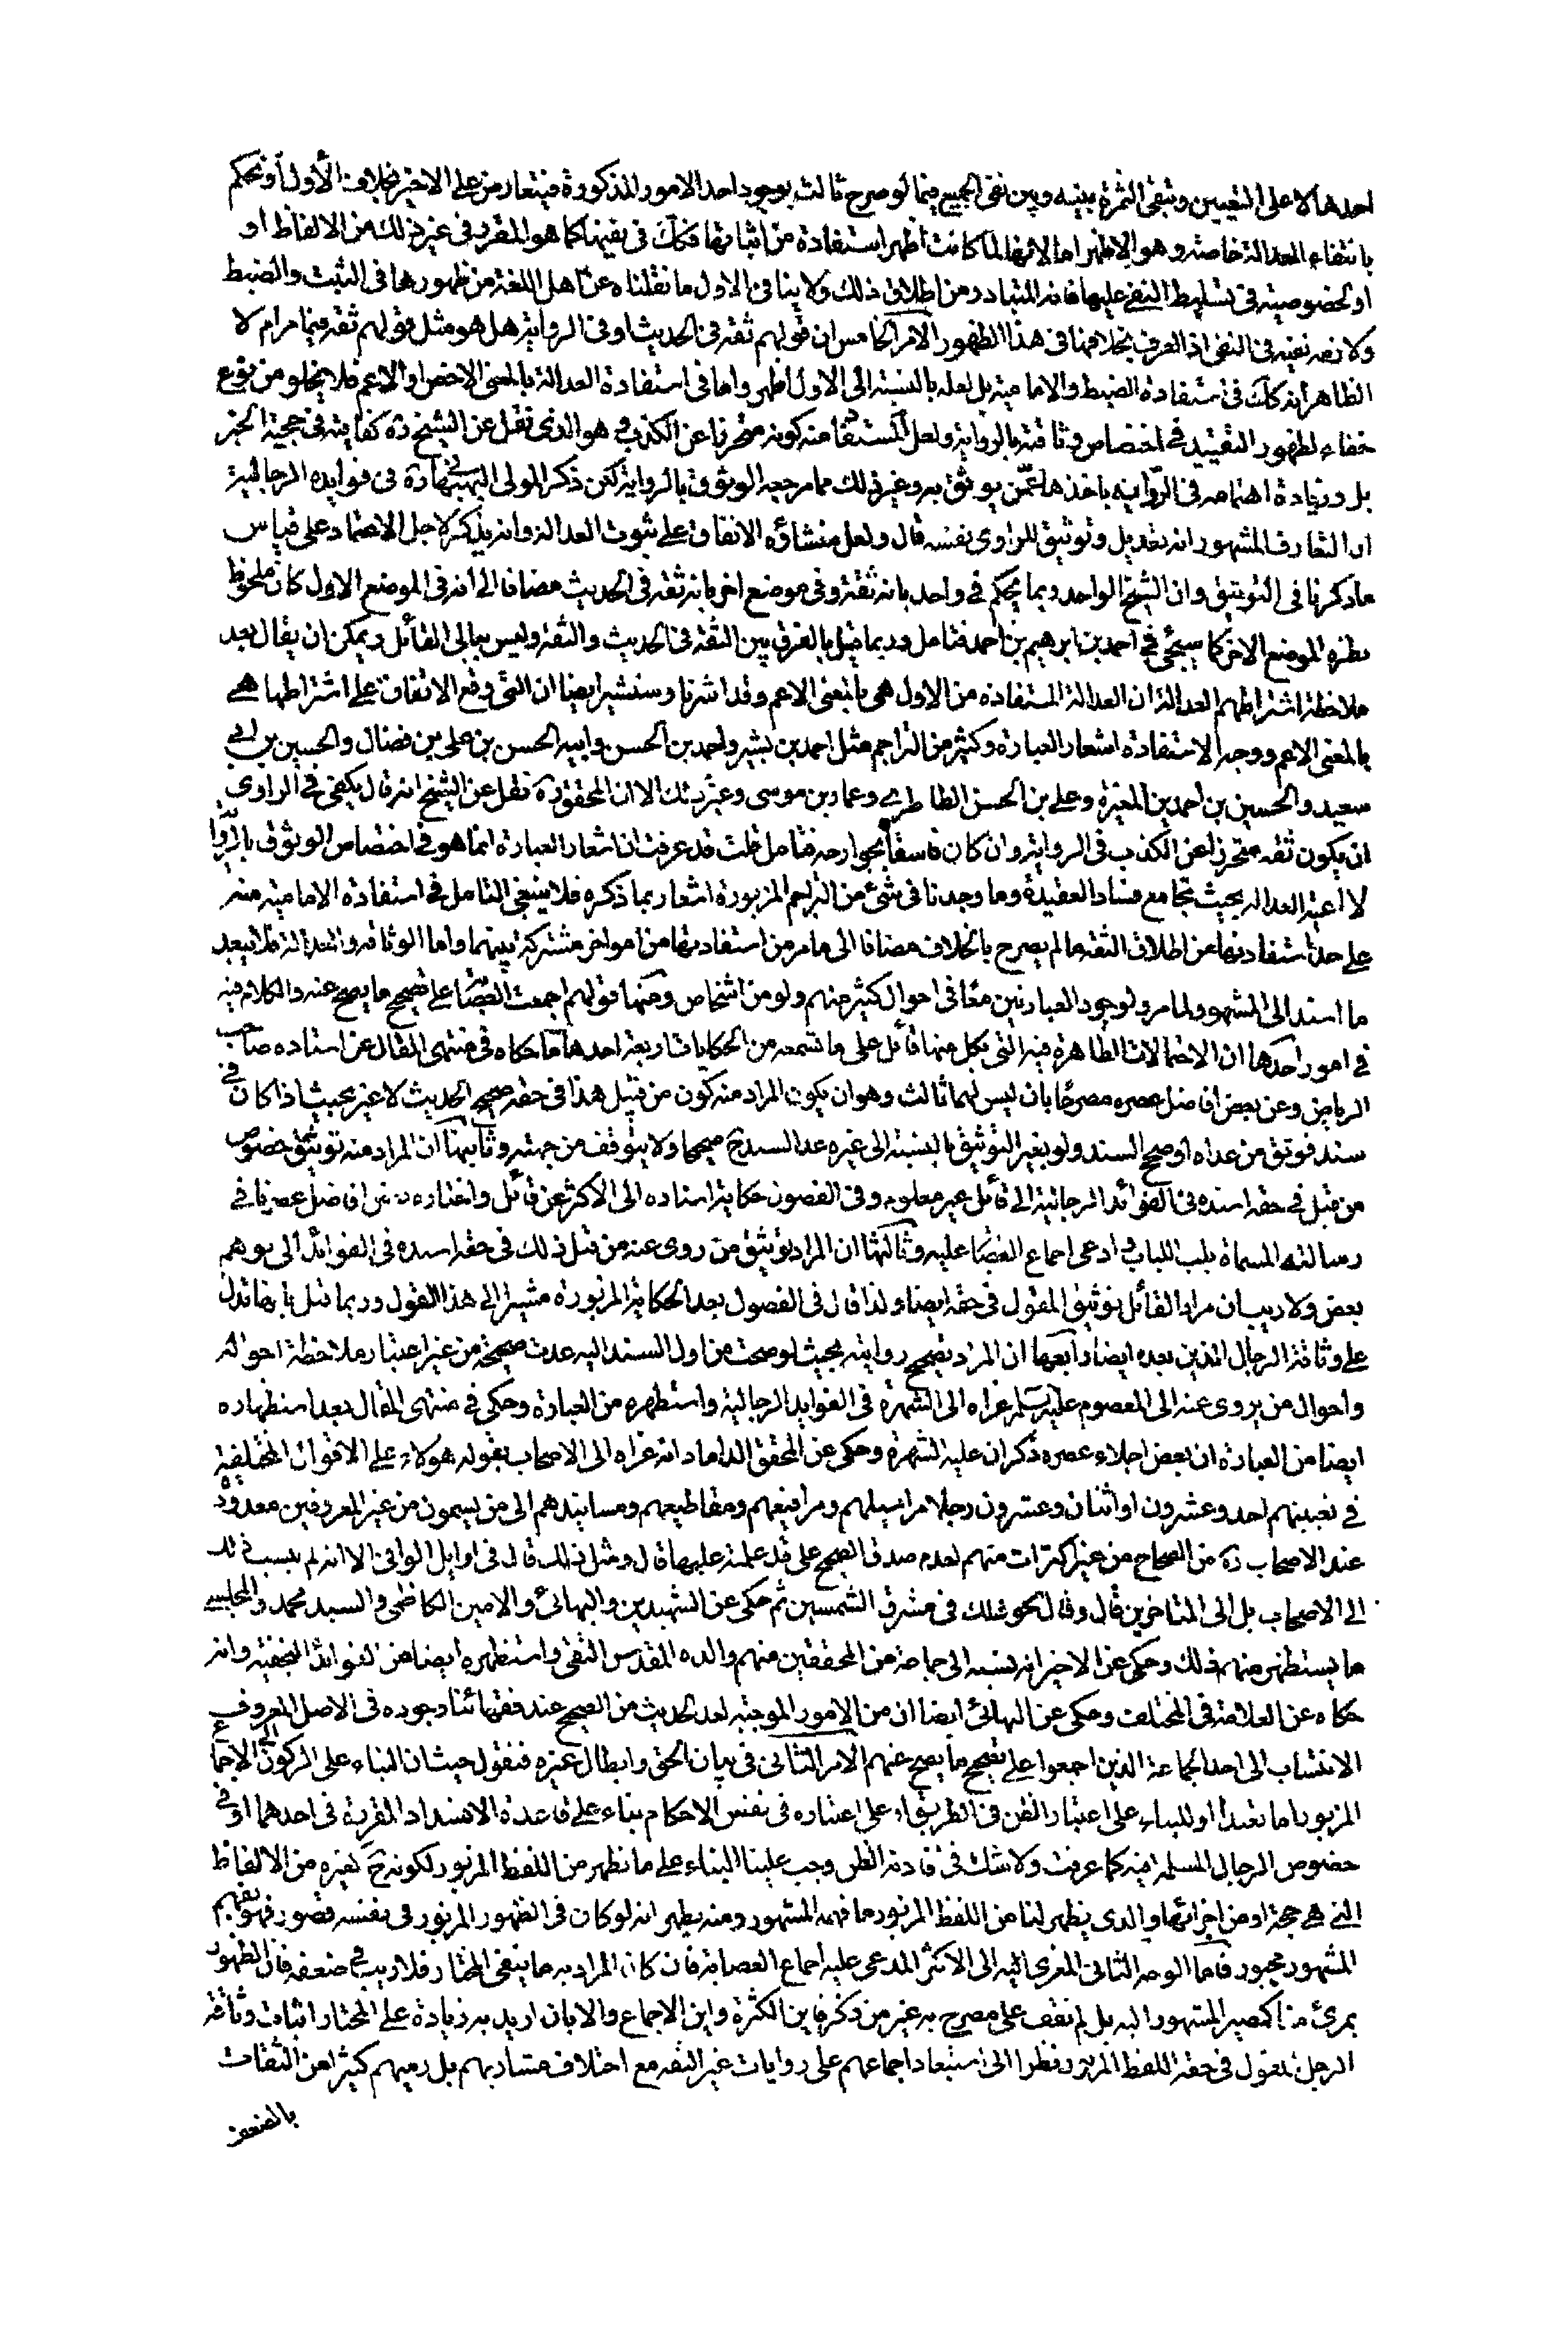 احدها لا على التعيين وتبقى الثمرة بينه وبين نفى الجميع فيما لو صرح ثالث بوجود احد الامور المذكورة فيتعارض على الاخير بخلاف الأول أو نحكم
بانتفاء العدالة خاصة وهو الاظهر اما لانها لما كانت اظهر استفادة من اثباتها فكك فى نفيها كما هو المقرر فى غير ذلك من الالفاظ او
او لخصوصية فى تسليط النفى عليها فانه المتبادر من اطلاق ذلك ولا ينافى الاول ما نقلناه عن اهل اللغة من ظهورها فى الثبت والضبط
ولا نعه نعنيه فى النفى اذ العرف بخلافها فى هذا الظهور الامر الخامس ان قولهم ثقة فى الحديث او فى الرواية هل هو مثل قولهم ثقة فيما مر ام لا
الظاهر انه كك فى استفادة الضبط والامامية بل لعله بالنسبة الى الاول اظهر واما فى استفادة العدالة بالمعنى الاخص او الاعم فلا يخلو من نوع
خفاء لظهور التقييد فى اختصاص وثاقته بالرواية ولعل المستفاد منه كونه متحرزا عن الكذب وهو الذى نقل عن الشيخ ره كفايته فى حجية الخبر
بل وزيادة اهتمامه فى الرواية باخذها عمّن يوثق به وغير ذلك مما مرجعه الوثوق بالرواية لكن ذكر المولى البهبهانى ره فى فوايده الرجالية
ان التعارف المشهور انه تعديل وتوثيق للراوى نفسه قال ولعل منشاؤه الاتفاق على ثبوت العدالة وانه يذكر لاجل الاعتماد على قياس
ما ذكرنا فى التوثيق وان الشيخ الواحد ربما يحكم فى واحد بانه ثقة وفى موضع اخر بانه ثقة فى الحديث مضافا الى انه فى الموضع الاول كان ملحوظ
نظره الموضع الاخر كما سيجئ فى احمد بن ابرهيم بن احمد فتامل وربما قيل بالفرق بين الثقة فى الحديث والثقة وليس ببالى القائل ويمكن ان يقال بعد
ملاحظة اشتراطهم العدالة ان العدالة المستفادة من الاول هى بالمعنى الاعم وقد اشرنا وسنشير ايضا ان التى وقع الاتفاق على اشتراطها هى
بالمعنى الاعم ووجه الاستفادة اشعار العبارة وكثير من التراجم مثل احمد بن بشير واحمد بن الحسن وابيه الحسن بن على بن فضال والحسين بن ابى
سعيد والحسين بن احمد بن المغيرة وعلى بن الحسن الطاطرى وعمار بن موسى وغير ذلك الا ان المحقق ره نقل عن الشيخ انه قال يكفى فى الراوى
ان يكون ثقة متحرزا عن الكذب فى الرواية وان كان فاسقا بجوارحه فتامل قلت قد عرفت ان اشعار العبارة انما هو فى اختصاص الوثوق بالرواية
لا اعتبر العدالة بحيث تجامع فساد العقيدة وما وجدنا فى شئ من التراجم المزبورة اشعار بما ذكره فلا ينبغى التامل فى استفادة الامامية منه
على حد استفادتها عن اطلاق الثقة ما لم يصرح بالخلاف مضافا الى ما مر من استفادتها من امور اخر مشتركة بينهما واما الوثاقة والعدالة فلا يبعد
ما اسند الى المشهور ولما مر ولوجود العبارتين معا فى احوال كثير منهم ولو من اشخاص ومنها قولهم اجمعت العصابة على تصحيح ما يصح عنه والكلام فيه
فى امور احدها ان الاحتمالات الظاهرة فيه التى بكل منها قائل على ما تسمعه من الحكايات اربعة احدها ما حكاه فى منتهى المقال عن استاده صاحب
الرياض وعن بعض افاضل عصره مصرحا بان ليس لهما ثالث وهو ان يكون المراد منه كون من قيل هذا فى حقه صحيح الحديث لا غير بحيث اذا كان فى
سند فوثق من عداه او صحح السند ولو بغير التوثيق بالنسبة الى غيره عد السند ح صحيحا ولا يتوقف من جهته وثانيها ان المراد منه توثيق خصوص
من قيل فى حقه اسنده فى الفوائد الرجالية الى قائل غير معلوم وفى الفصول حكاية اسناده الى الاكثر عن قائل واختاره بعض افاضل عصرنا فى
رسالته المسماة بلب اللباب وادعى اجماع العصابة عليه وثالثها ان المراد توثيق من روى عنه من قيل ذلك فى حقه اسنده فى الفوائد الى توهم
بعض ولا ريب ان مراد القائل توثيق المقول فى حقه ايضا ولذا قال فى الفصول بعد الحكاية المزبورة مشيرا الى هذا القول وربما قيل بانها تدل
على وثاقة الرجال الذين بعده ايضا رابعها ان المراد تصحيح روايته بحيث لو صحت من اول السند اليه عدت صحيحة من غير اعتبار ملاحظة احواله
واحوال من يروى عنه الى المعصوم عليه السلم عزاه الى الشهرة فى الفوايد الرجالية واستظهره من العبارة وحكى فى منتهى المقال بعد استظهاره
ايضا من العبارة ان بعض اجلاء عصره ذكر ان عليه الشهرة وحكى عن المحقق الداماد انه عزاه الى الاصحاب بقوله هؤلاء على الاقوال المختلفة
فى تعيينهم احد وعشرون او اثنان وعشرون رجلا مراسيلهم ومرافيعهم ومقاطيعهم ومسانيدهم الى من يسمون من غير المعروفين معدودة
عند الاصحاب ره من الصحاح من غير اكتراث منهم لعدم صدق الصحيح على قد علمته عليها قال ومثل ذلك قال فى اوايل الوافى الا انه لم ينسب ذلك
الى الاصحاب بل الى المتاخرين قال وقال نحو ذلك فى مشرق الشمسين ثم حكى عن الشهيدين والبهائى والامين الكاظمى والسيد محمد والمجلسى
ما يستظهر منهم ذلك وحكى عن الاخير انه نسبه الى جماعة من المحققين منهم والده المقدس التقى واستظهره ايضا من الفوائد النجفية وانه
حكاه عن العلامة فى المختلف وحكى عن البهائى ايضا ان من الامور الموجبة لعد الحديث من الصحيح عند فقهائنا وجوده فى الاصل المعروف
الانتساب الى احد الجماعة الذين اجمعوا على تصحيح ما يصح عنهم الامر الثانى فى بيان الحق وابطال غيره فنقول حيث ان البناء على الركون الى الاجماع
المزبور اما تعبدا او للبناء على اعتبار الظن فى الطريق او على اعتباره فى نفس الاحكام بناء على قاعدة الانسداد المقررة فى احدهما او فى
خصوص الرجال المسلمة فيه كما عرفت ولا شك فى افادته الظن وجب علينا البناء على ما نظهر من اللفظ المزبور لكونه ح كغيره من الالفاظ
التى هى حجة او من اجزائها والذى يظهر لنا من اللفظ المزبور ما فهمه المشهور ومنه يظهر انه لو كان فى الظهور المزبور فى نفسه قصور فهو بفهم
المشهور مجبور فاما الوجه الثانى المعزى اليه الى الاكثر المدعى عليه اجماع العصابة فان كان المراد به ما ينفى المختار فلا ريب فى ضعفه فان الظهور
بمرئ منا كمصير المشهور اليه بل لم نقف على مصرح به غير من ذكر فاين الكثرة واين الاجماع والا بان اريد به زيادة على المختار اثبات وثاقة
الرجل المقول فى حقه اللفظ المزبور نظرا الى استبعاد اجماعهم على روايات غير الثقة مع اختلاف مشاربهم بل رميهم كثيرا من الثقات
بالضعف